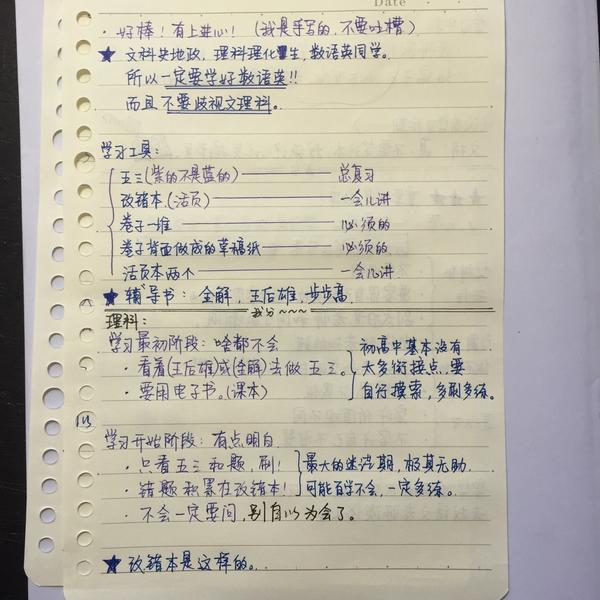 Date
· 好棒！有上进心！（我是手写的，不要吐槽）
★ 文科史地政，理科理化生，数语英同学。
所以一定要学好数语英!!
而且不要歧视文理科。
学习工具：
五三(紫的不是蓝的) —— 总复习
改错本.(活页) —— 一会儿讲
卷子一堆 —— 必须的
卷子背面做成的草稿纸 —— 必须的
活页本两个 —— 一会儿讲
★ 辅导书：全解，王后雄，步步高
我分~~~
理科：
学习最初阶段：啥都不会
· 看着(王后雄)或(全解)去做五三。
· 要用电子书。(课本)
初高中基本没有
太多衔接点，要
自行摸索，多刷多练。
学习开始阶段：有点明白
· 只看五三和题，刷！
· 错题积累在改错本！
最大的迷茫期，极其无助
可能百学不会，一定多练。
· 不会一定要问，别自以为会了。
★ 改错本是这样的。